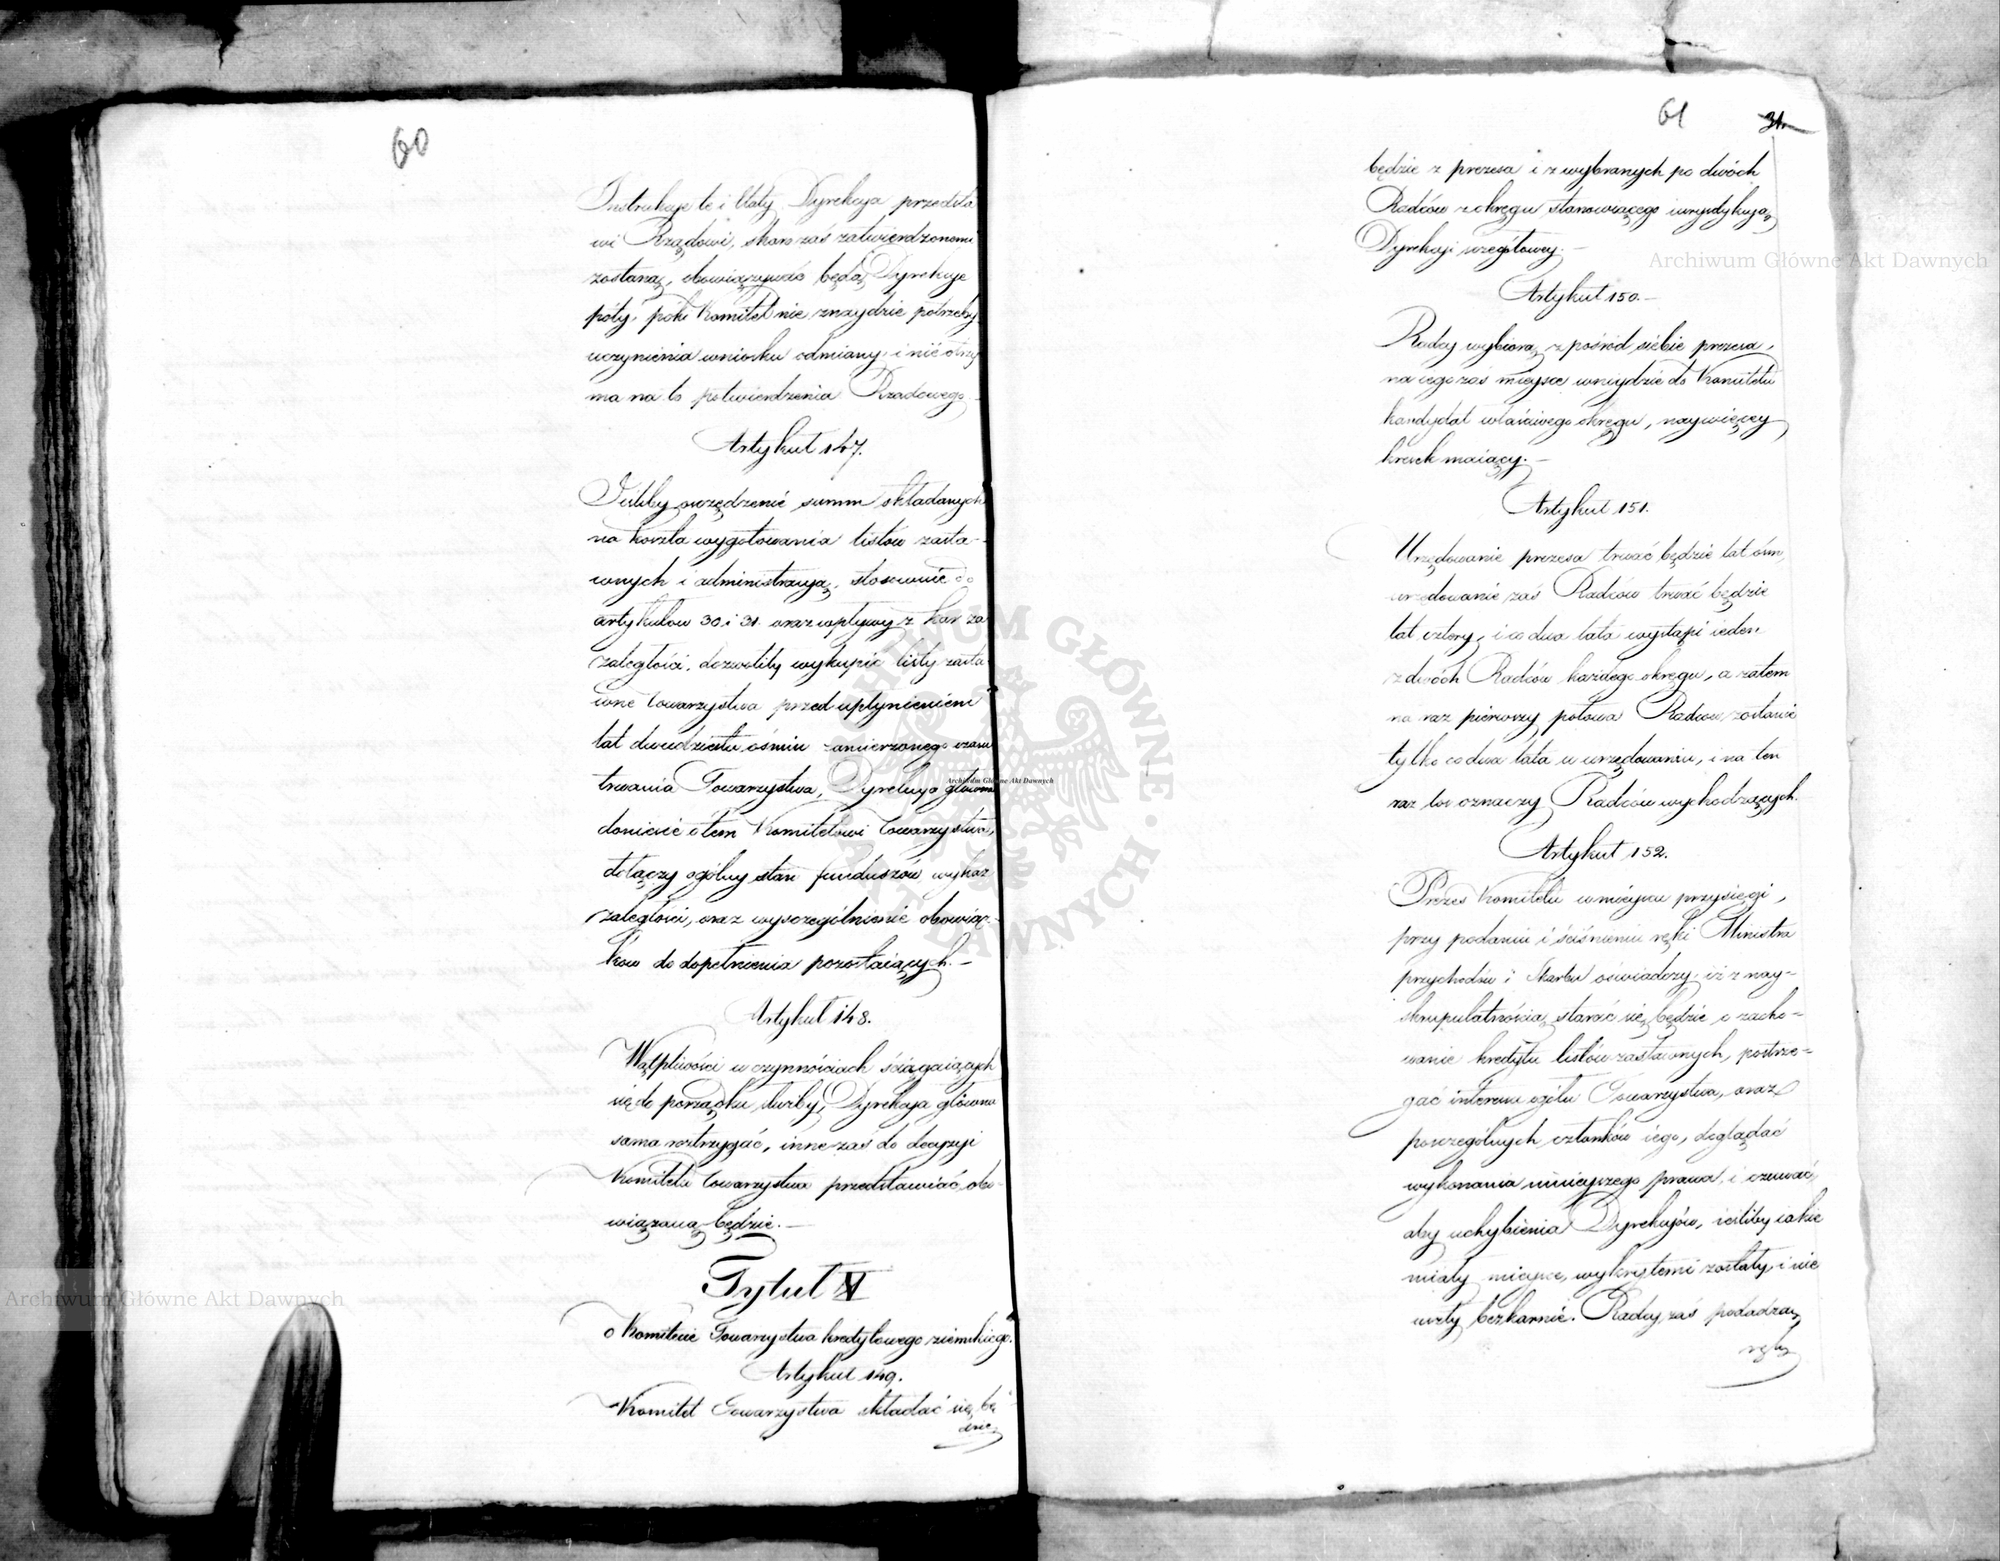 60
Instrukcje te i Etaty, Dyrekcya przedsta
wi Rządowi, skoro zaś zatwierdzonemi
zostaną, obowiązywać będą Dyrekcye
póty, póki Komitet nie znaydzie potrzeby
uczynienia wniosku odmiany, i nie otrzy
ma na to potwierdzenia Rządowego.
Artykuł 147.
Jeśliby oszczędzenie summ składanych
na koszta wygotowania listów zasta-
wnych i administracyą, stosownie do
artykułów 30 i 31. oraz wpływy z kar za
zaległości, dozwoliły wykupić listy zasta
wne towarzystwa przed upłynieniem
lat dwudziestu ośmiu zamierzonego czasu
trwania Towarzystwa, Dyrekcya główna
doniesie o tem Komitetowi towarzystwa,
dołączy ogólny stan funduszów, wykaz
zaległości, oraz wyszczególnienie obowiąz-
ków do dopełnienia pozostaiących.—
Artykuł 148.
Wątpliwości w czynnościach ściągaiących
się do porządku służby, Dyrekcya główna
sama roztrzygać, inne zaś do decyzyi
Komitetu towarzystwa przedstawiać obo-
wiązaną będzie.—
Tytuł XI
o Komitecie Towarzystwa kredytowego ziemskiego.
Artykuł 149.
Komitet Towarzystwa składać się bę
dzie
61 31.
będzie z prezesa i z wybranych po dwóch
Radców z okręgu stanowiącego iuryzdykcyą
Dyrekcyi szczegółowey.—
Artykuł 150.—
Radcy wybiorą z pośród siebie prezesa,
na iego zaś mieysce wniydzie do Komitetu
kandydat właściwego okręgu, naywięcey
kresek maiący.—
Artykuł 151.
Urzędowanie prezesa trwać będzie lat ośm,
urzędowanie zaś Radców trwać będzie
lat cztery, i co dwa lata wystąpi ieden
z dwóch Radców każdego okręgu, a zatem
na raz pierwszy połowa Radców zostanie
tylko co dwa lata w urzędowaniu, i na ten
raz los oznaczy Radców wychodzących.
Artykuł 152.
Prezes Komitetu w mieyscu przysięgi,
przy podaniu i ściśnieniu ręki Ministra
przychodów i Skarbu oświadczy, iż z nay-
skrupulatnością starać się będzie o zacho-
wanie kredytu listów zastawnych, postrze-
gać interesu ogółu Towarzystwa, oraz
poszczególnych członków iego, doglądać
wykonania ninieyszego prawa, i czuwać,
aby uchybienia Dyrekcyów, ieśliby iakie
miały mieysce, wykrytemi zostały, i nie
uszły bezkarnie. Radcy zaś podadzą
rękę
Archiwum Główne Akt Dawnych
Archiwum Główne Akt Dawnych
Archiwum Główne Akt Dawnych
ARCHIWUM GŁÓWNE AKT DAWNYCH